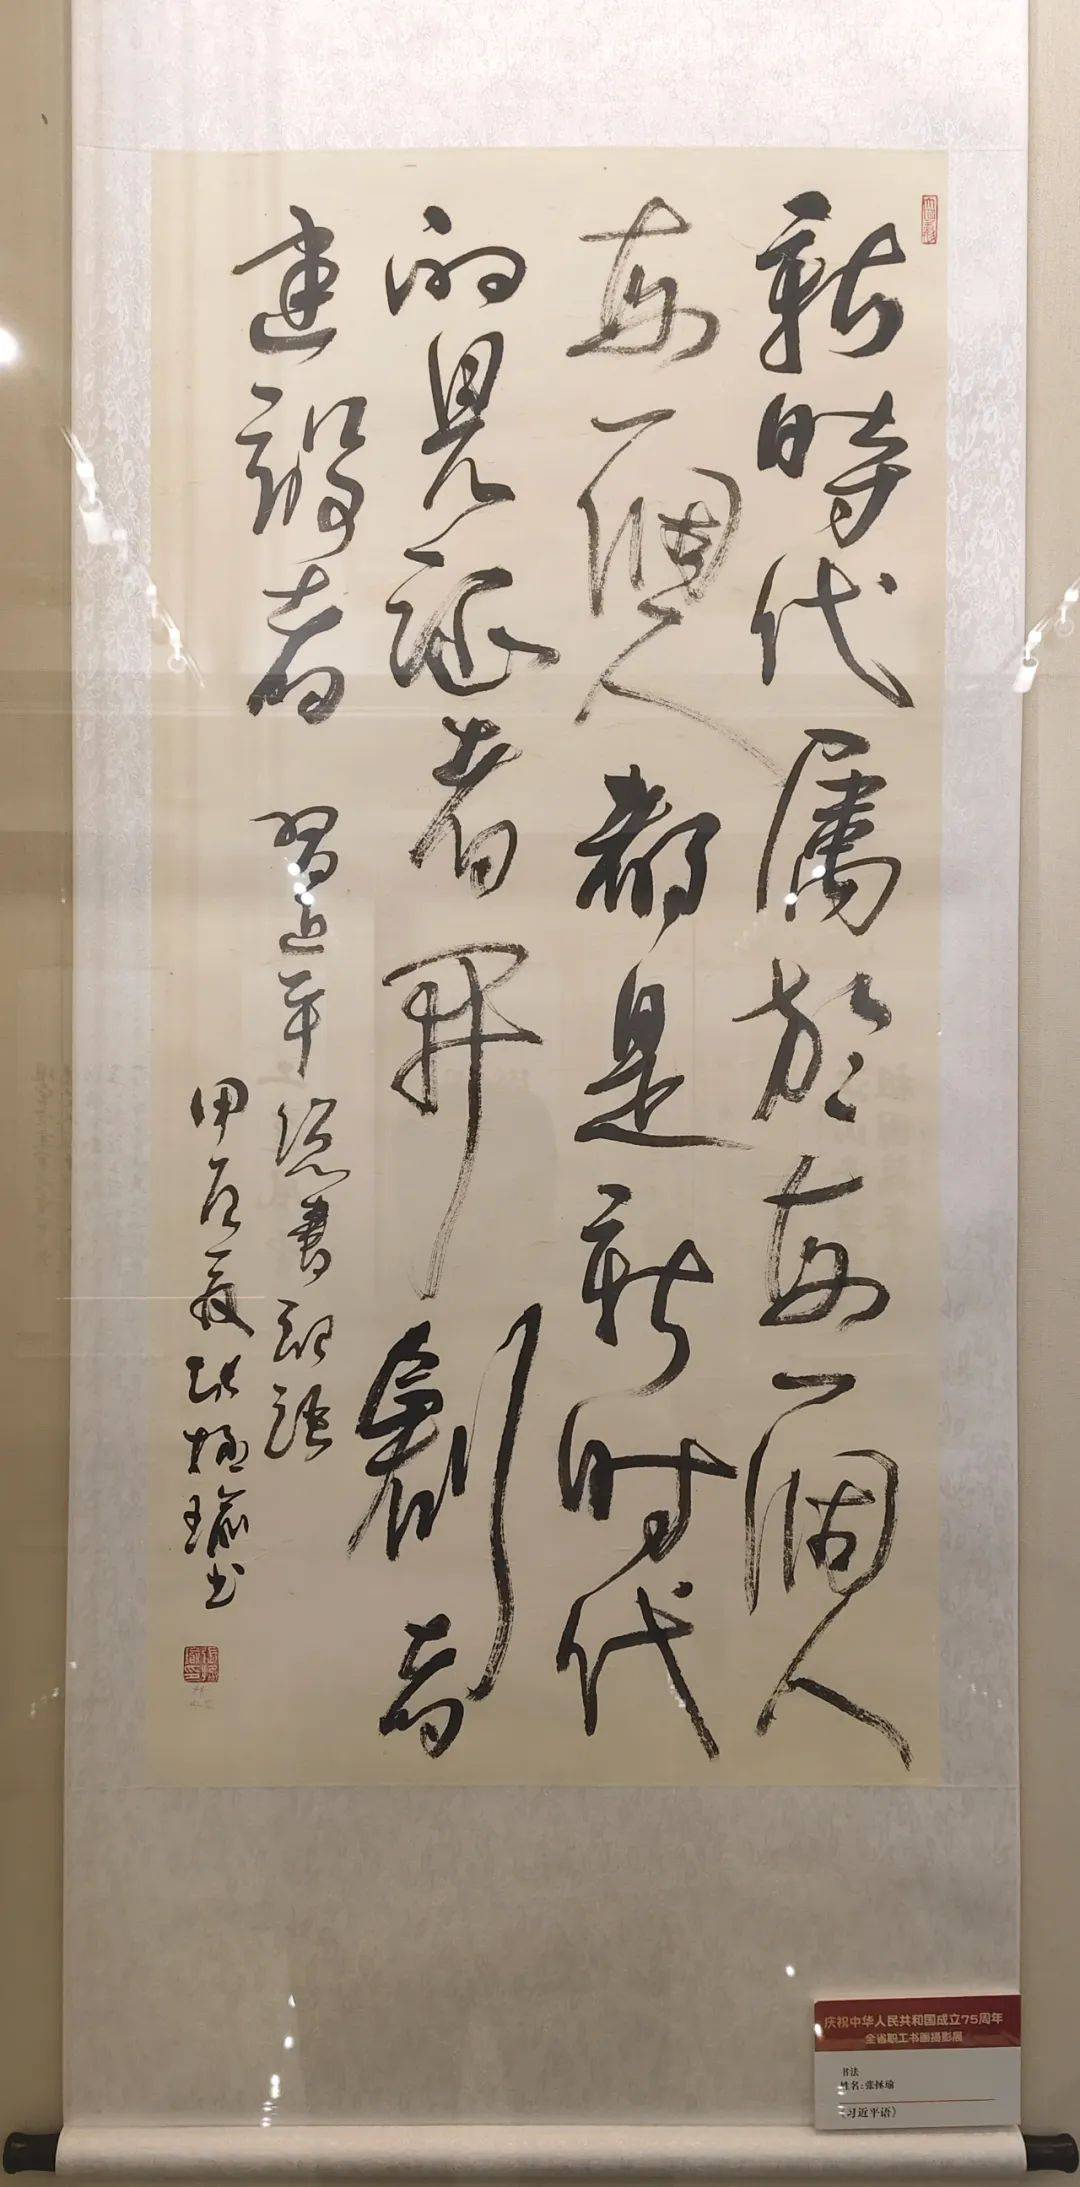 新時代属於每一個人
每一個人都是新时代
的見证者開創者
建設者 習近平總書記語
甲辰夏張拯瑜书
庆祝中华人民共和国成立75周年
全省职工书画摄影展
书法
姓名：张拯瑜
《习近平语》